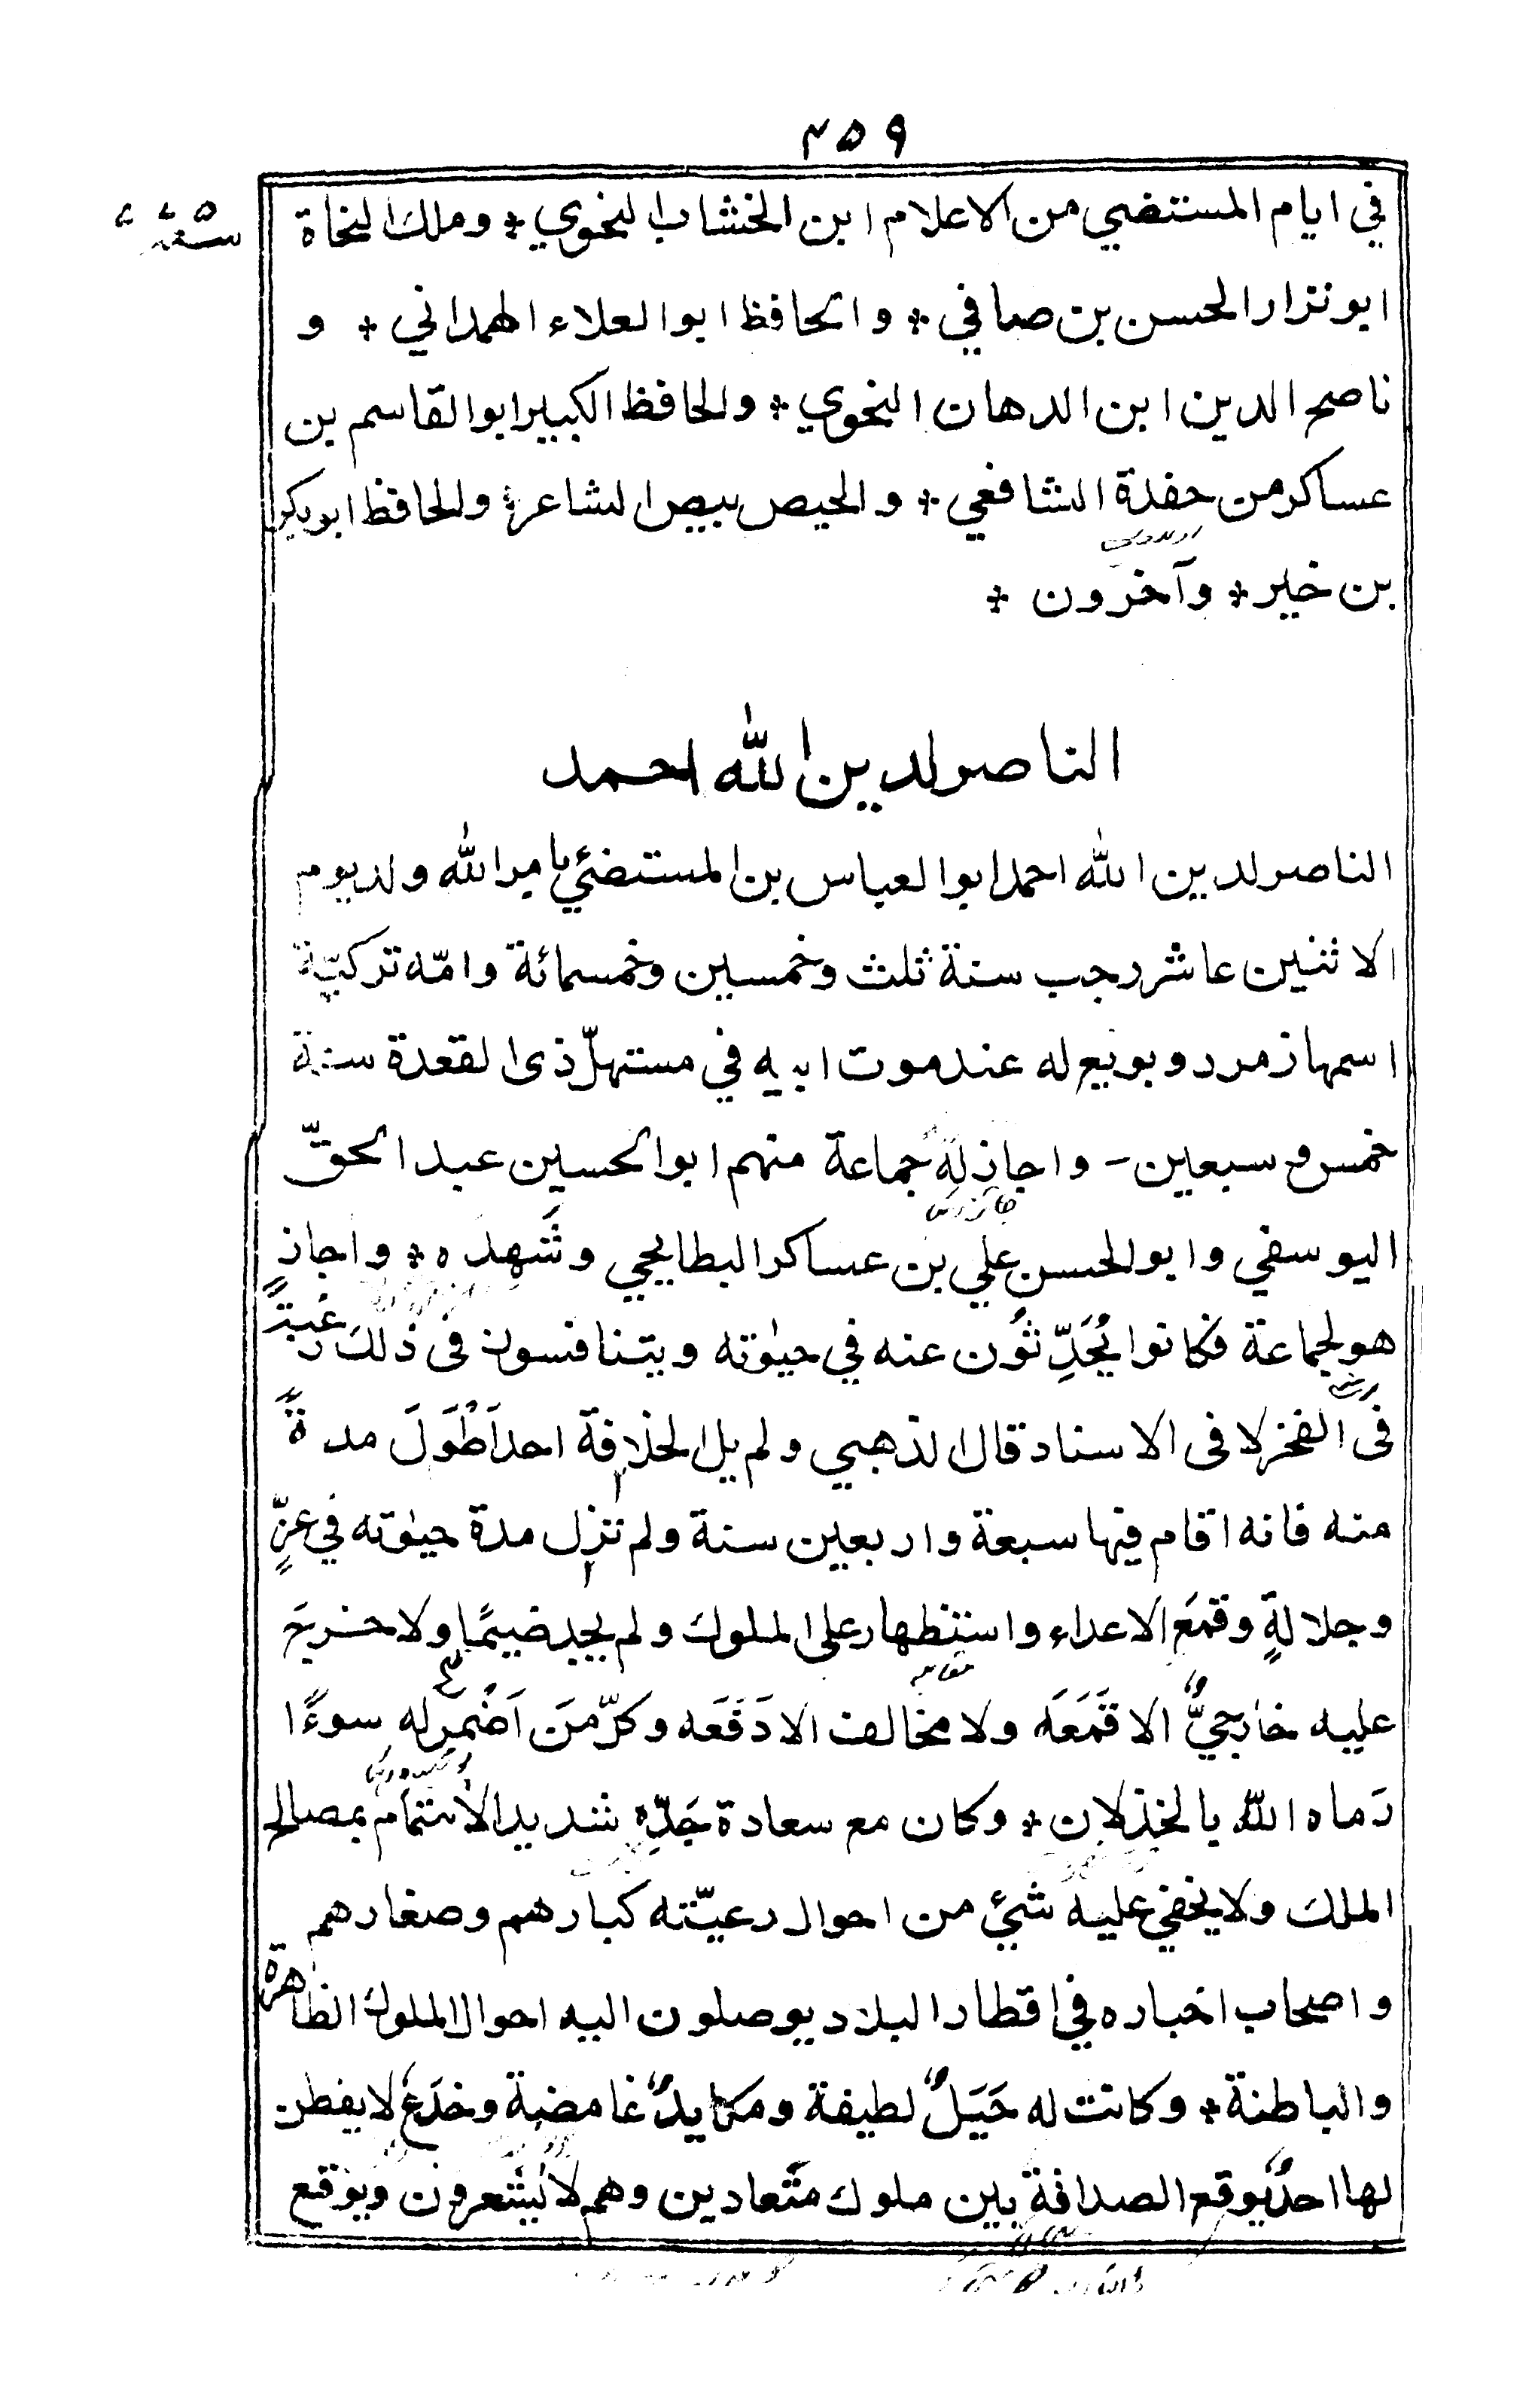 ٤٥٩
في ايام المستضيي من الاعلام ابن الخشاب النحوي * وملك النحاة
سنه ٥٧٥
ابو نزار الحسن بن صافي * والحافظ ابو العلاء الهمداني * و
ناصح الدين ابن الدهان النحوي * والحافظ الكبير ابو القاسم بن
عساكر من حفدة الشافعي * والحيص بيص الشاعر * والحافظ ابو بكر
بن خير * وآخرون *
الناصر لدين الله احمد
الناصر لدين الله احمد ابو العباس بن المستضئي بامر الله ولد يوم
الاثنين عاشر رجب سنة ثلث وخمسين وخمسمائة وامّه تركيّة
اسمها زمرد وبويع له عند موت ابيه في مستهلّ ذى القعدة سنة
خمس و سبعين - واجاز له جماعة منهم ابو الحسين عبد الحقّ
اليوسفي وابو الحسن علي بن عساكر البطايحي وشَهده * واجاز
هو لجماعة فكانوا يُحَدِّثُون عنه في حيٰوته ويتنافسون فى ذلك رغبةً
فى الفخر لا فى الاسناد قال الذهبي ولم يل الخلافة احد اَطْوَلَ مدةً
منه فانه اقام فيها سبعة واربعين سنة ولم تزل مدة حيٰوته في عزٍّ
وجلالةٍ وقمَع الاعداء واستظهار على الملوك ولم يجد ضيمًا ولا خرج
عليه خارجيٌّ الا قَمَعَه ولا مخالف الا دَفَعَه وكلّ منَ اَضْمر له سوءًا
رَماه اللّٰه بالخذلان * وكان مع سعادة جَدِّه شديد الاهتمام بمصالح
الملك ولا يخفي عليه شئ من احوال رعيّته كبارهم وصغارهم
واصحاب اخباره في اقطار البلاد يوصلون اليه احوال الملوك الظاهرة
والباطنة * وكانت له حَيَلٌ لطيفة ومكايدٌ غامضة وخدَع لا يفطن
لها احدٌ يوقع الصداقة بين ملوك متعادين وهم لا يشعرون ويوقع